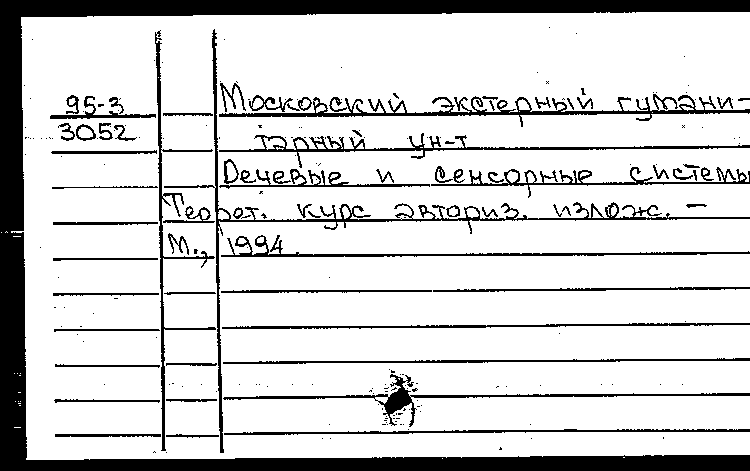 95-3 Московский экстерный гумани-
3052 тарный ун-т
Речевые и сенсорные системы
Теорет. курс авториз. излож. –
М., 1994.